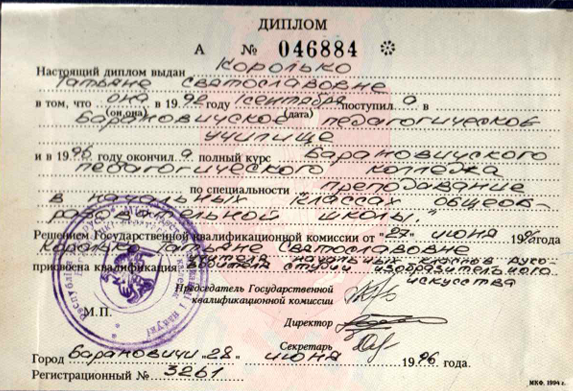 ДИПЛОМ
А № 046884
Настоящий диплом выдан Королько
Татьяне Святославовне
в том, что она в 1992 году 1 сентября поступил а в
(он, она) (дата)
Барановичское педагогическое
училище
и в 1996 году окончил а полный курс Барановичского
педагогического колледжа
по специальности "Преподавание
в начальных классах общеоб-
разовательной школы."
Решением Государственной квалификационной комиссии от "27" июня 1996 года
Королько Татьяне Святославовне
присвоена квалификация учителя начальных классов руко-
водителя студии изобразительного
искусства
Председатель Государственной
квалификационной комиссии
М.П.
Директор
Секретарь
Город Барановичи "28" июня 1996 года.
Регистрационный № 3261
МКФ. 1994 г.